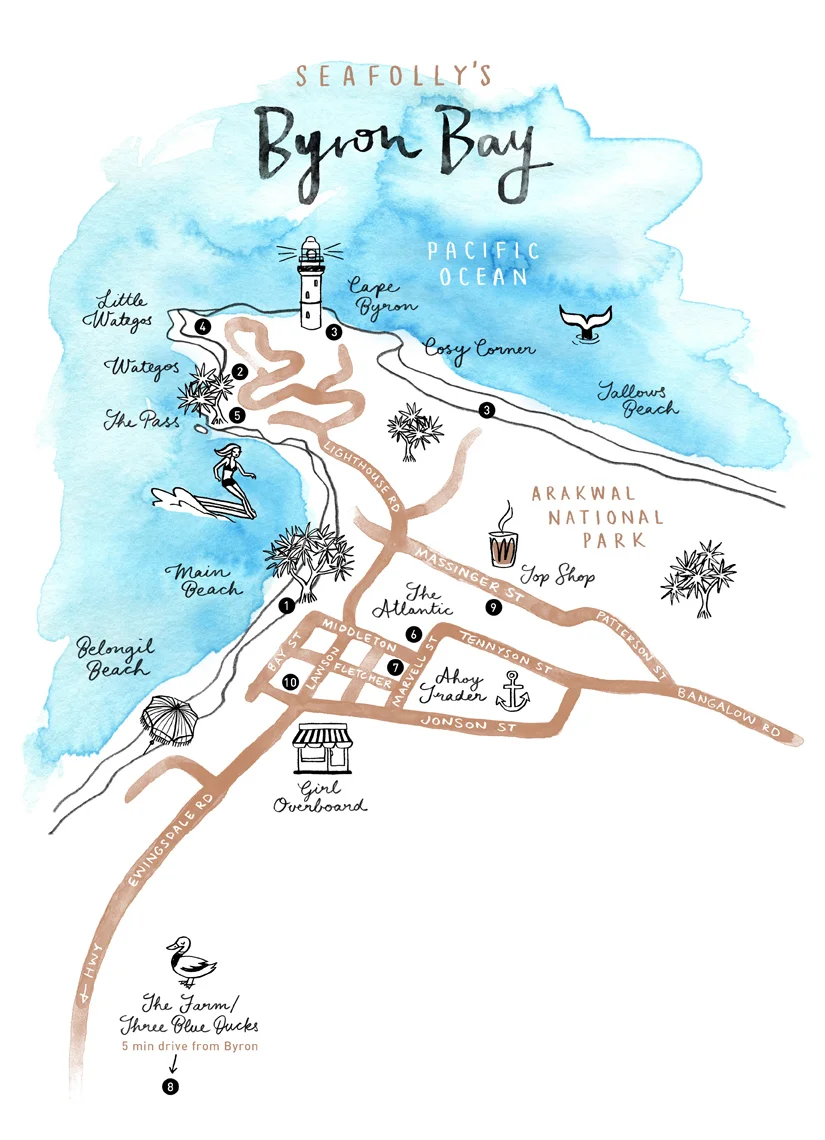 SEAFOLLY'S
Byron Bay
PACIFIC
OCEAN
Little
Wategos
4
Cape
Byron
3
Cosy Corner
Wategos
2
The Pass
5
3
Tallows
Beach
LIGHTHOUSE RD
ARAKWAL
NATIONAL
PARK
MASSINGER ST
Top Shop
9
Main
Beach
1
The
Atlantic
6
PATTERSON ST
Belongil
Beach
BAY ST
MIDDLETON
LAWSON
FLETCHER
7
MARVELL ST
TENNYSON ST
10
Ahoy
Trader
BANGALOW RD
JONSON ST
Girl
Overboard
EWINGSDALE RD
HWY
The Farm/
Three Blue Ducks
5 min drive from Byron
8